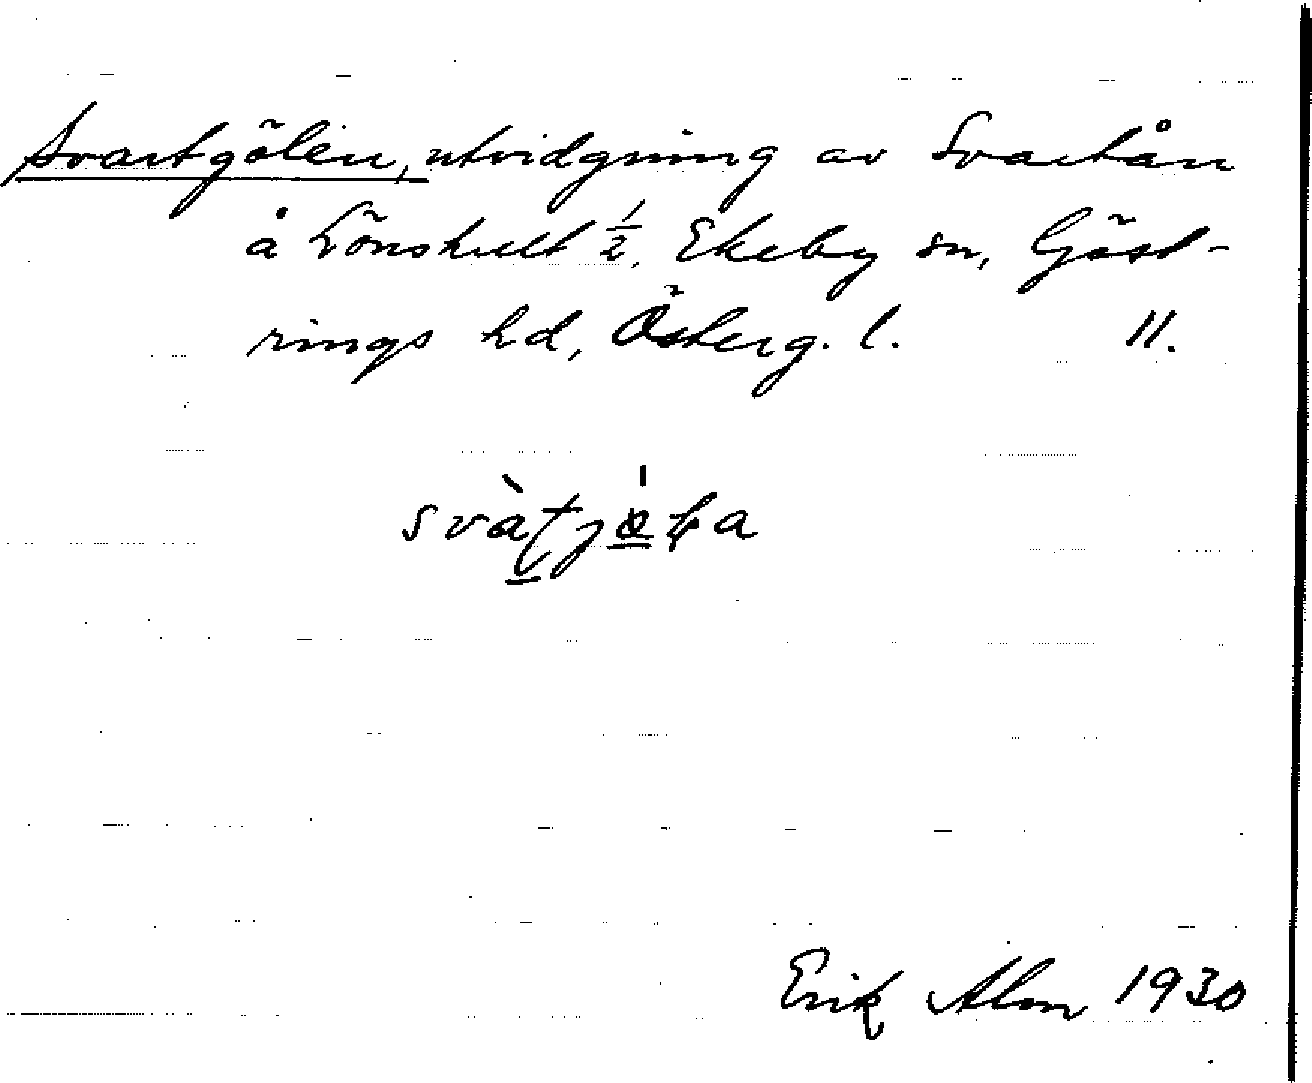 Svartgölen, utvidgning av Svartån
å Lönshult 1/2, Ekeby sn, Göst-
rings hd, Österg. l. 11.
Erik Alm 1930